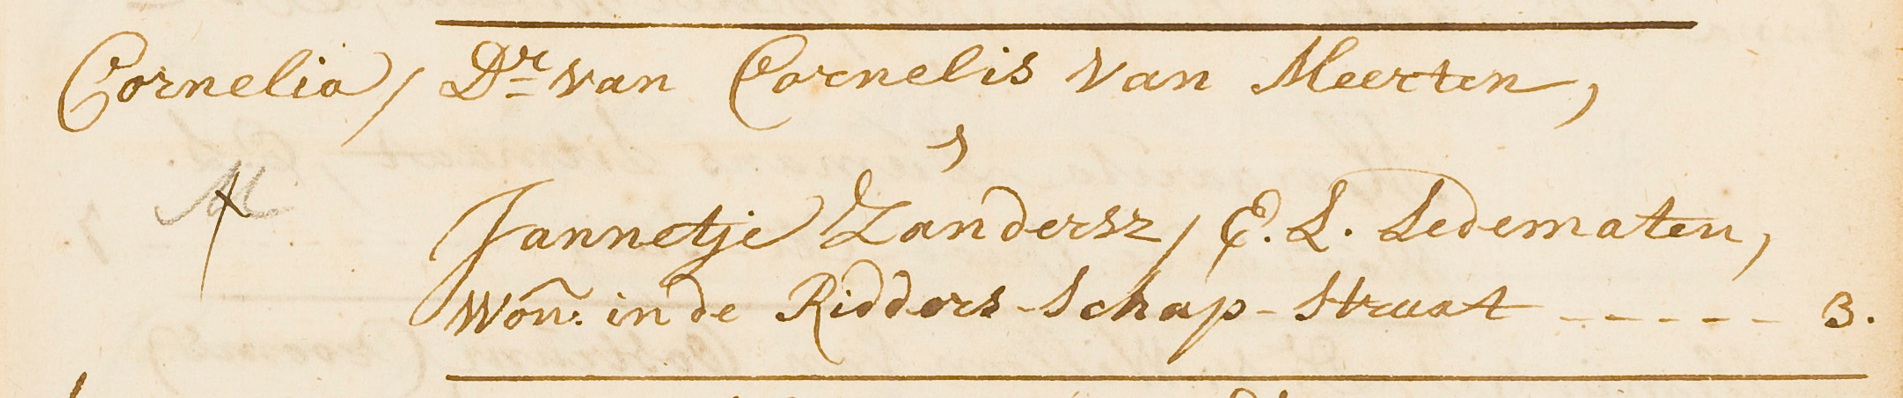 Cornelia / Dr van Cornelis van Meerten,
s
M
Jannetje Zandersz / E. L. Ledematen,
Won: in de Ridders-schap-Straat ------ 3.